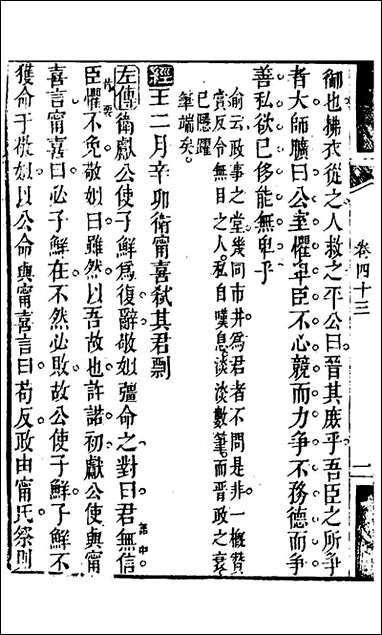 御也拂衣從之人救之平公曰晉其庶乎吾臣之所爭
者大師曠曰公室懼卑臣不心競而力爭不務德而爭
善私欲已侈能無卑乎
俞云政事之堂幾同市井爲君者不問是非一槪贊
賞反令無目之人私自嘆息淡淡數筆而晉政之衰
已隱躍
筆端矣
經王二月辛卯衛甯喜弑其君剽
左傳衛獻公使子鮮爲復辭敬姒彊命之對曰君無信
臣懼不免敬姒曰雖然以吾故也許諾初獻公使與甯
喜言甯喜曰必子鮮在不然必敗故公使子鮮子鮮不
獲命于敬姒以公命與甯喜言曰苟反政由甯氏祭則
卷四十三
二